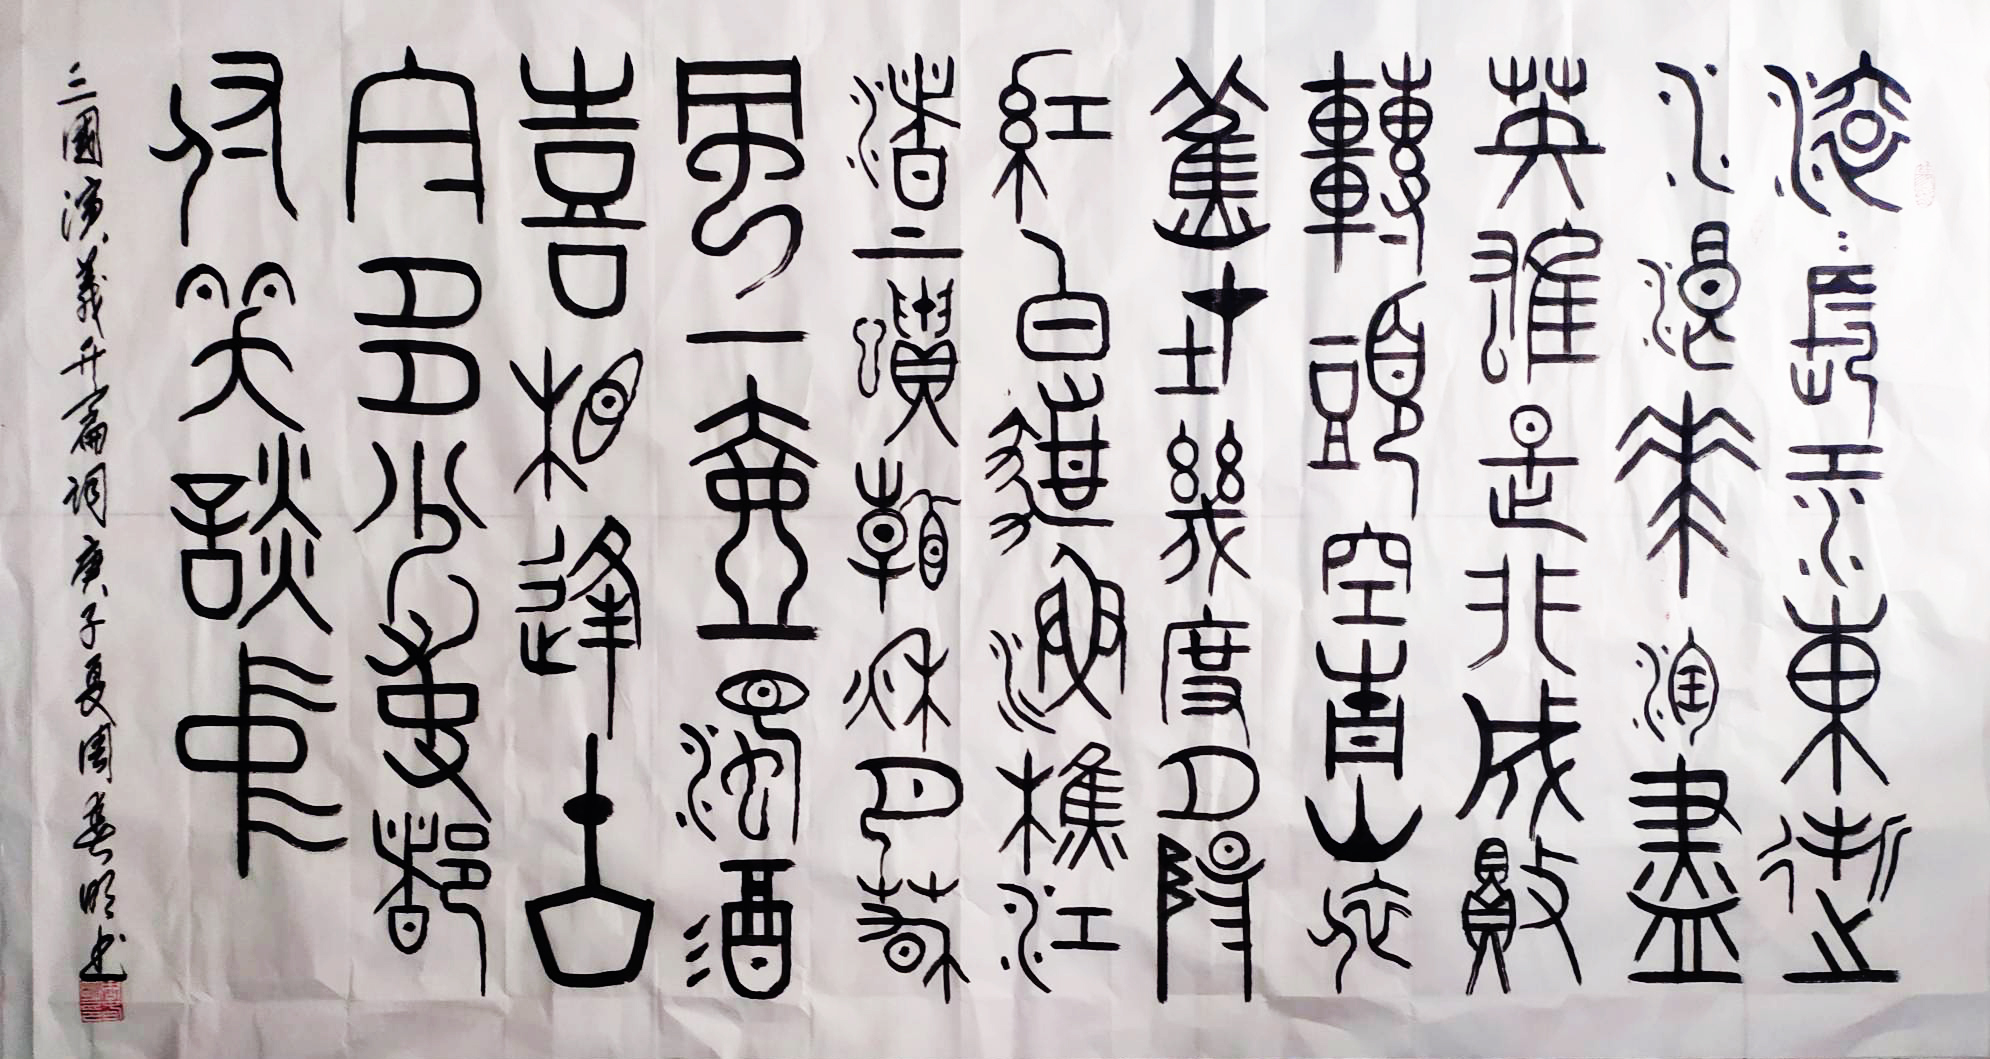 滾〻長江東逝
水浪花淘盡
英雄是非成敗
轉頭空青山依
舊在幾度夕陽
紅白髮漁樵江
渚上慣看秋月春
風一壺濁酒
喜相逢古
今多少事都
付笑談中
三國演義开篇词庚子夏周明书